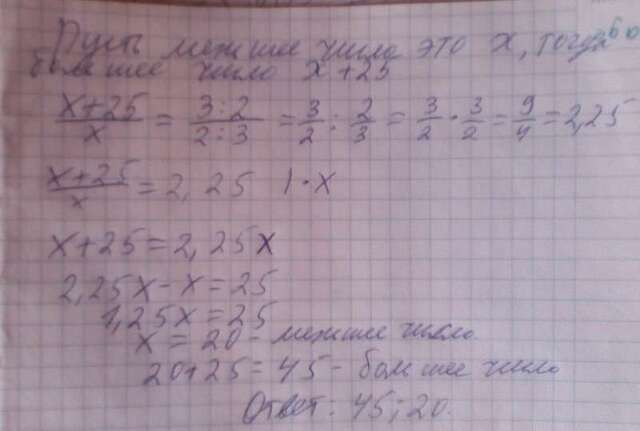 Пусть меньшее число это x, тогда
большее число x+25
x+25/x = 3:2/2:3 = 3/2 : 2/3 = 3/2 · 3/2 = 9/4 = 2,25
x+25/x = 2,25 | · x
x+25=2,25x
2,25x-x=25
1,25x=25
x = 20 - меньшее число
20+25=45 - большее число
Ответ: 45; 20.